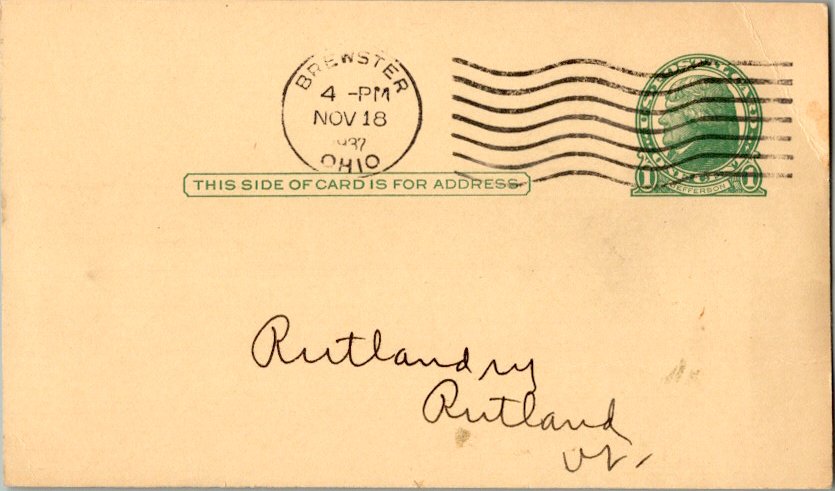 BREWSTER
4 -PM
NOV 18
1937
OHIO
U.S. POSTAL CARD
1 JEFFERSON 1
THIS SIDE OF CARD IS FOR ADDRESS
Rutland ry
Rutland
Vt.